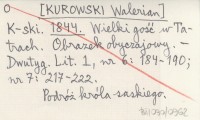 O [KUROWSKI Walerian]
K-ski. 1844. Wielki gość w Ta-
trach. Obrazek obyczajowy. –
Dwutyg. Lit. 1, nr 6: 184-190;
nr 7: 217-222.
Podróż króla saskiego.